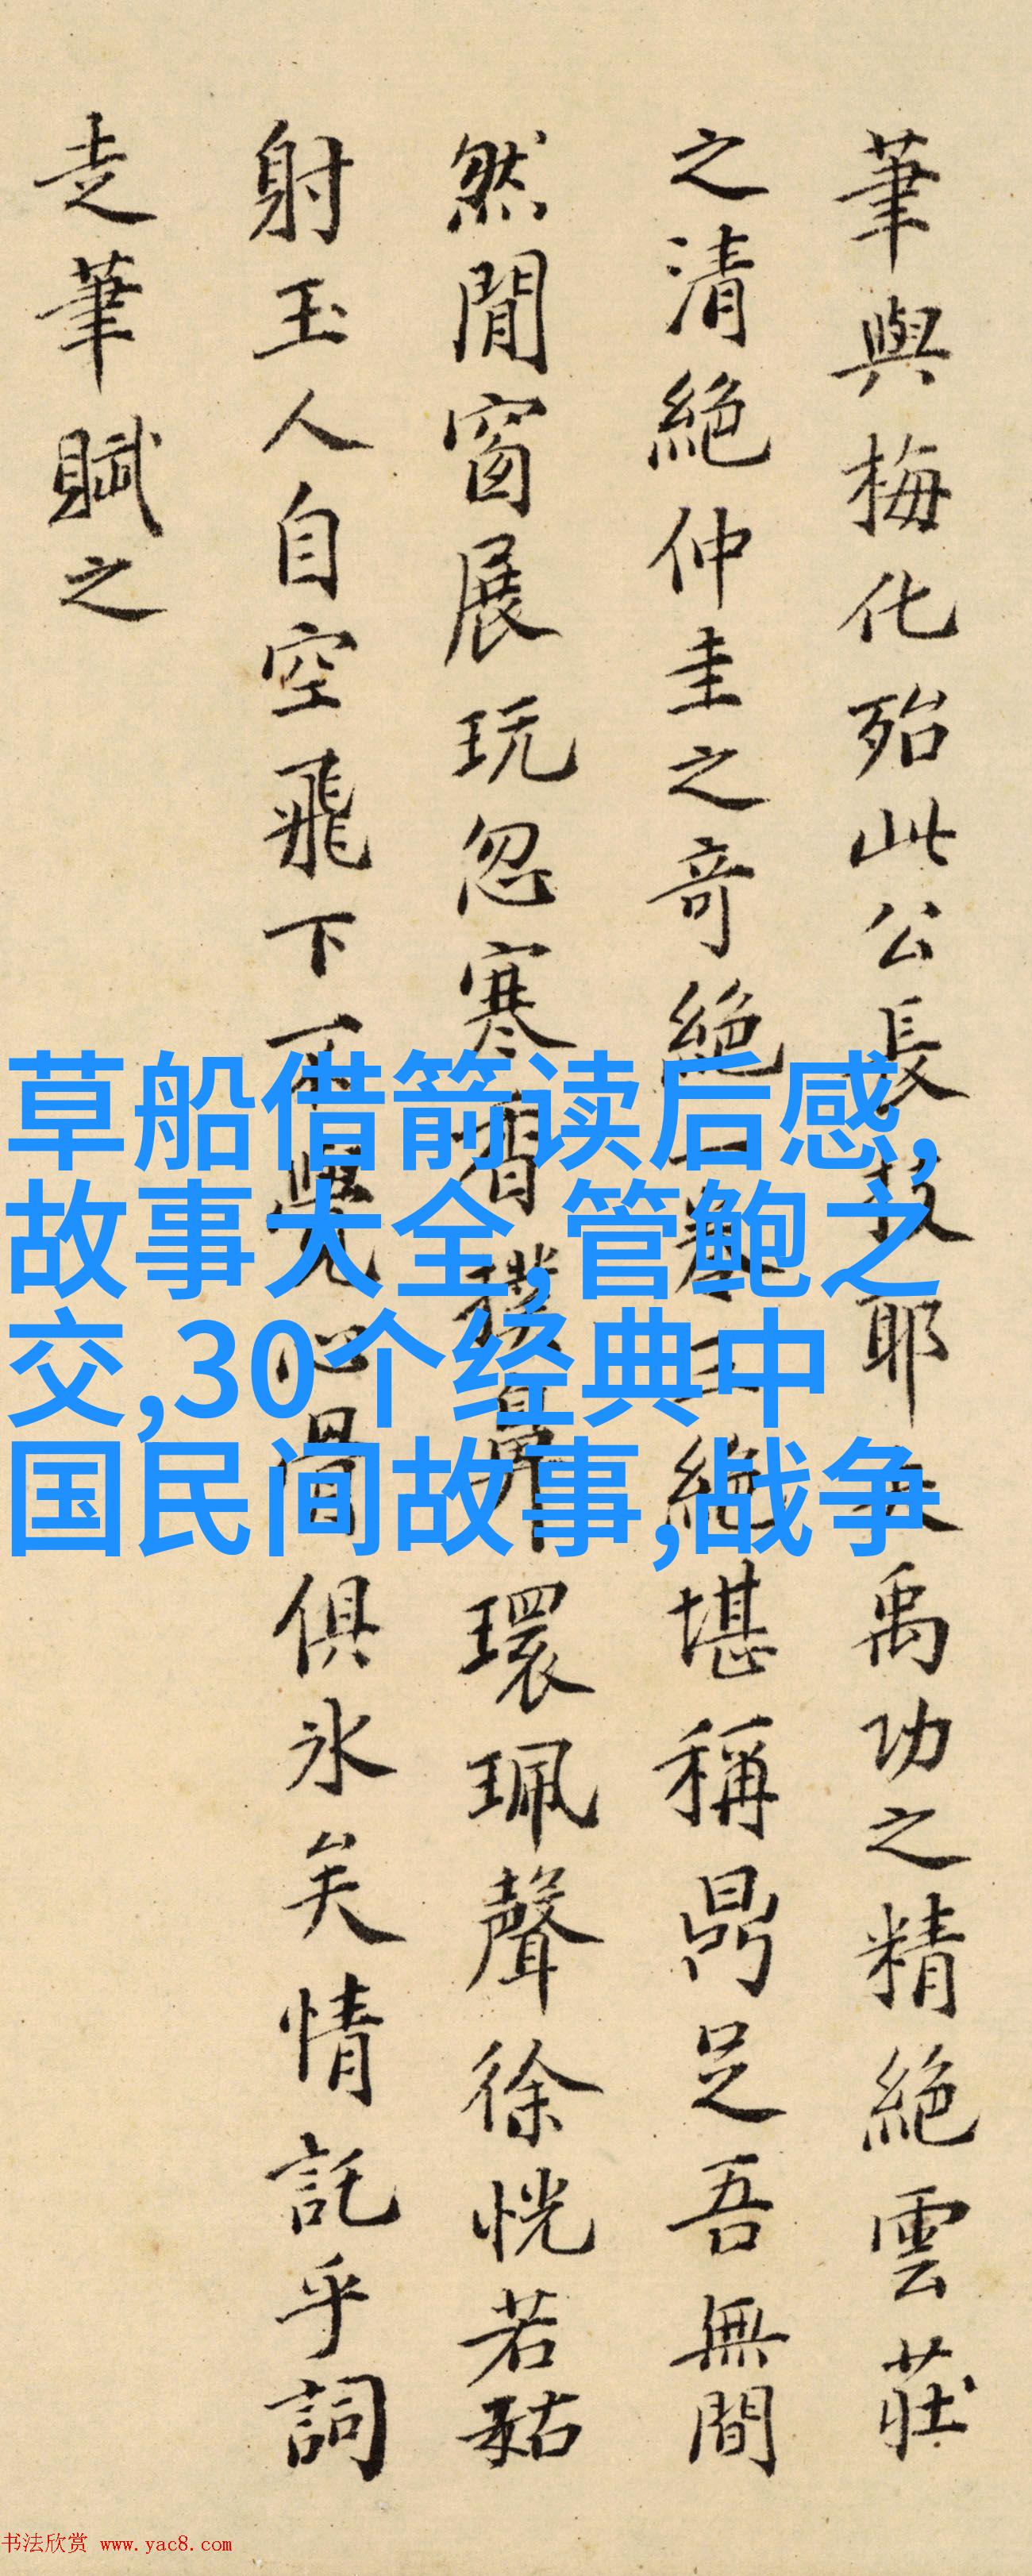 筆與梅化殆此公長技耶夫禹功之精絕雲莊
之清絕仲圭之奇絕一卷三絕堪稱鼎足吾無間
然閒窗展玩忽寒香襲鼻環珮聲徐恍若
射玉人自空飛下不覺心骨俱冰矣情託乎詞
走筆賦之
草船借箭读后感,
故事大全,管鲍之
交,30个经典中
国民间故事,战争
书法欣赏 www.yac8.com